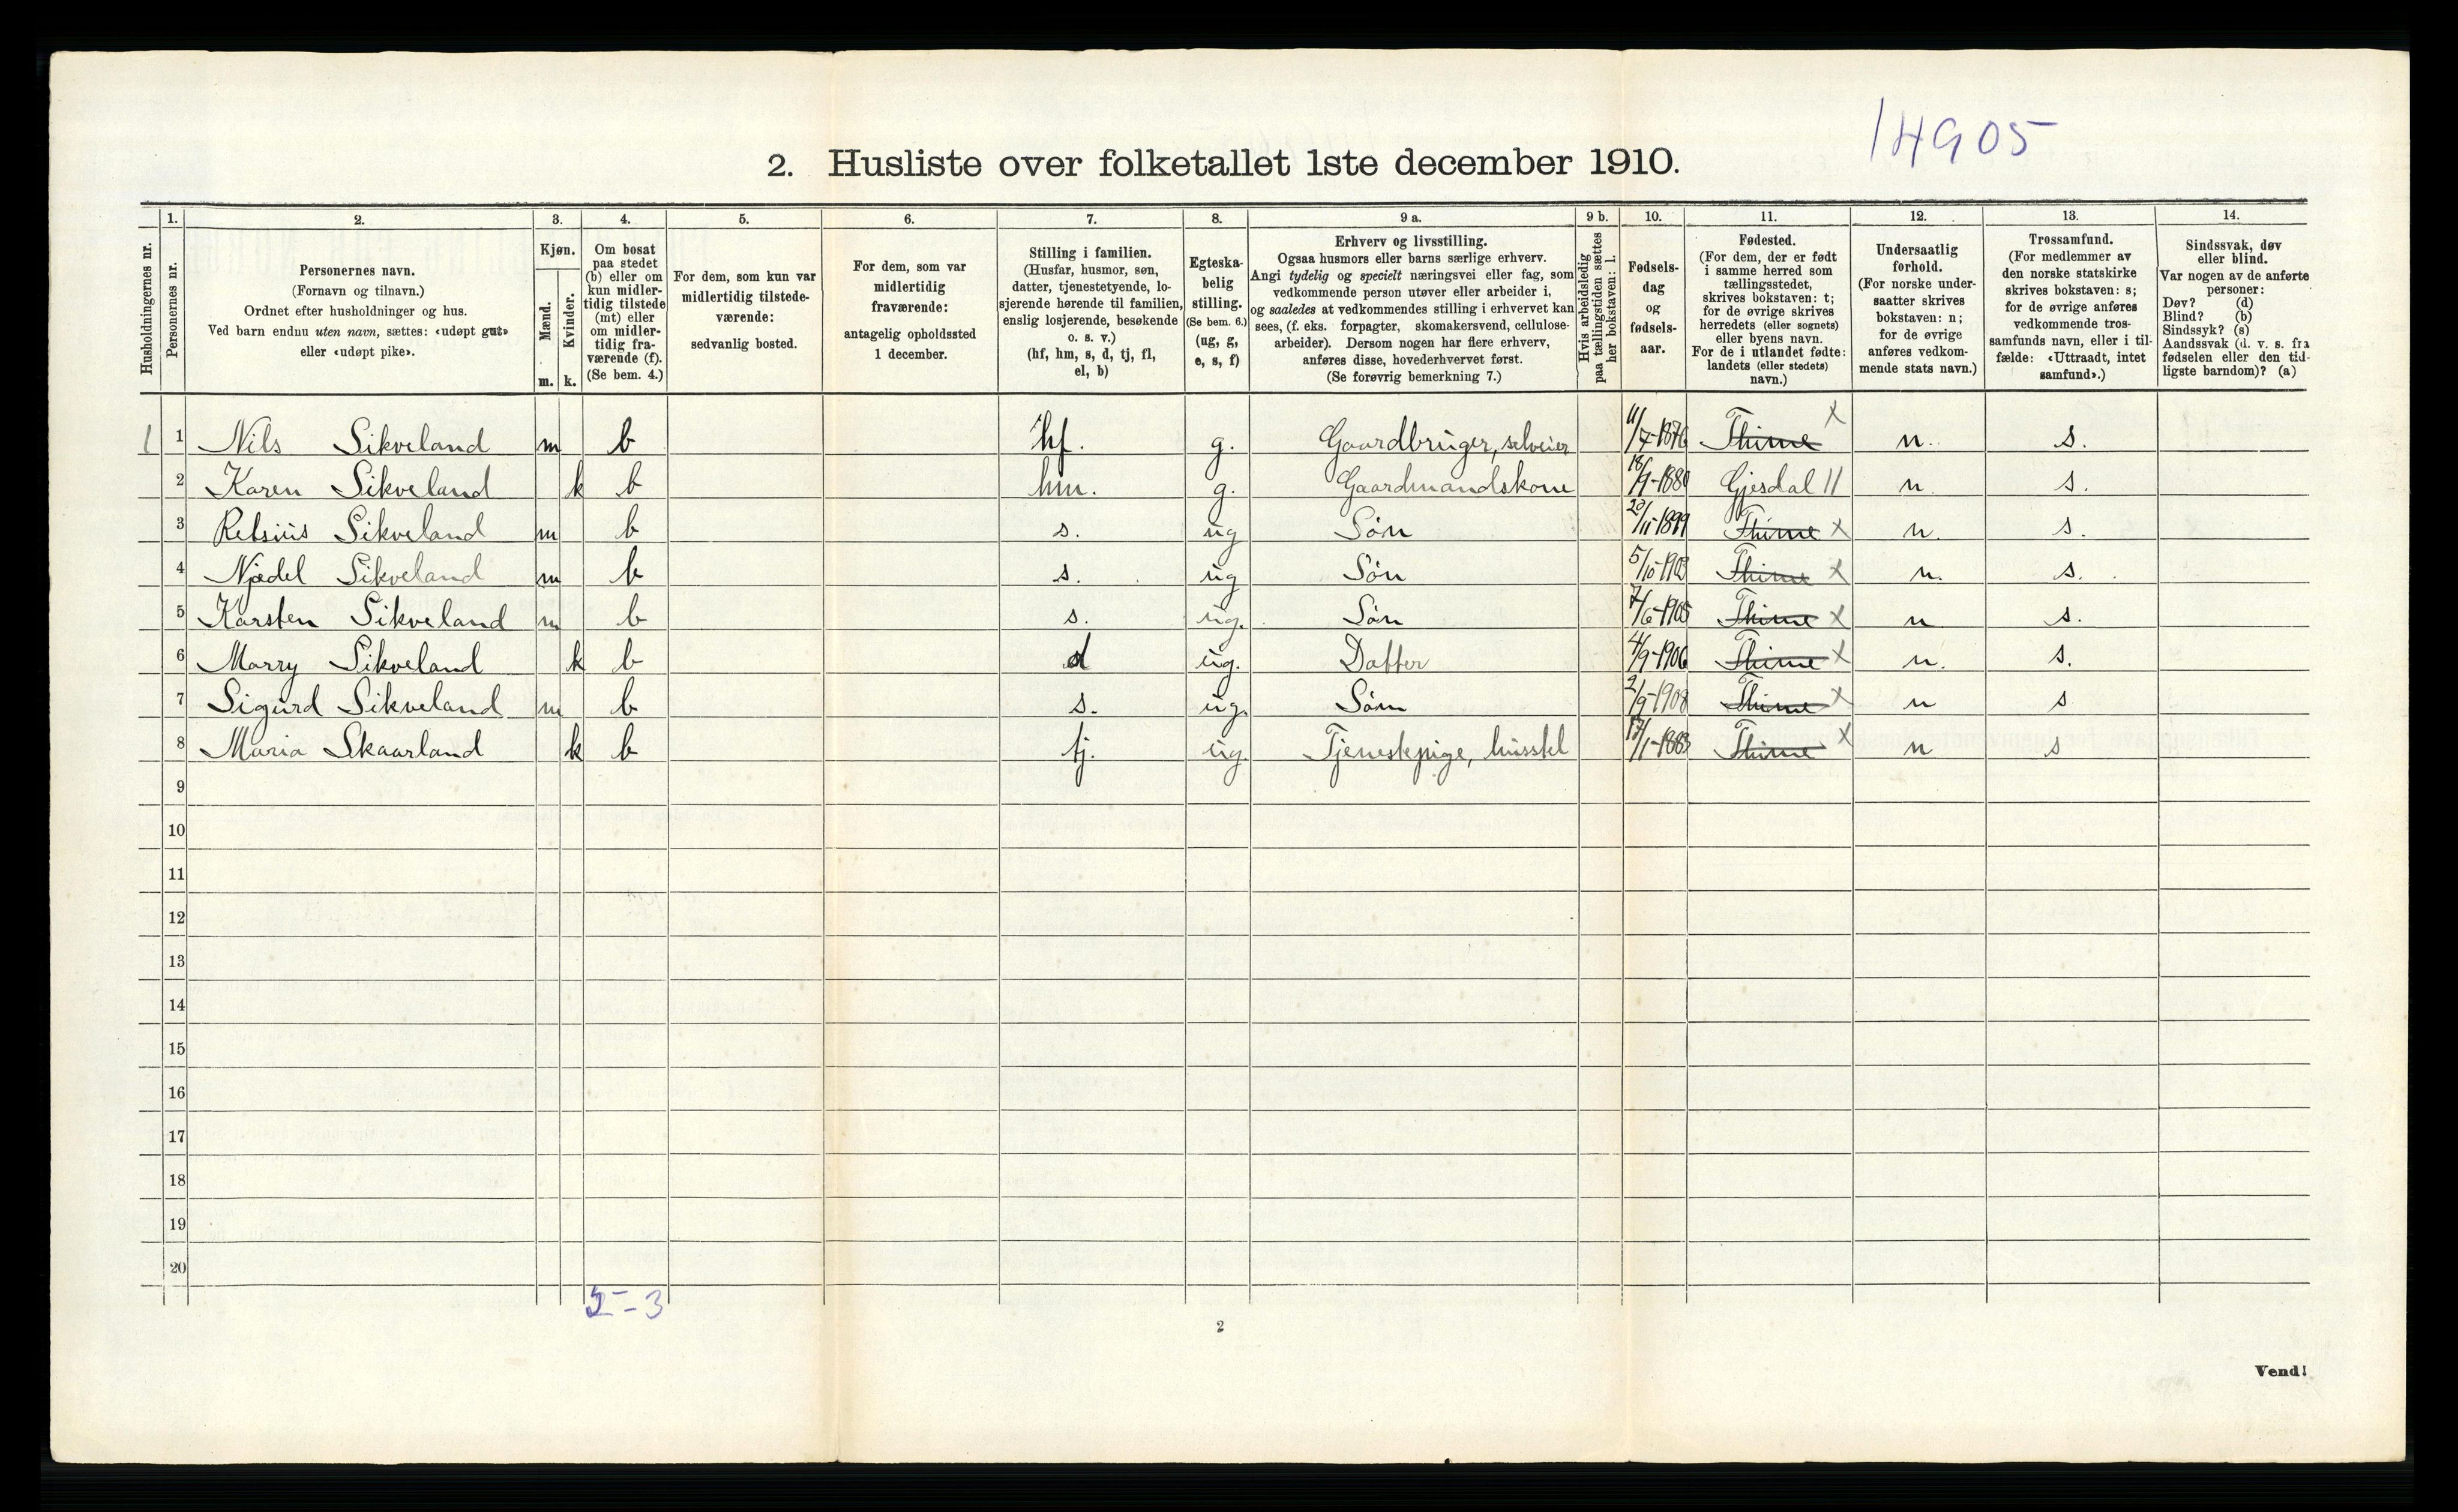 14905
2. Husliste over folketallet 1ste december 1910.
Husholdningernes nr.
1.
Personernes nr.
2.
Personernes navn.
(Fornavn og tilnavn.)
Ordnet efter husholdninger og hus.
Ved barn endnu uten navn, sættes: «udøpt gut»
eller «udøpt pike».
3.
Kjøn.
Mænd.
Kvinder.
m. k.
4.
Om bosat
paa stedet
(b) eller om
kun midler-
tidig tilstede
(mt) eller
om midler-
tidig fra-
værende (f).
(Se bem. 4.)
5.
For dem, som kun var
midlertidig tilstede-
værende:
sedvanlig bosted.
6.
For dem, som var
midlertidig
fraværende:
antagelig opholdssted
1 december.
7.
Stilling i familien.
(Husfar, husmor, søn,
datter, tjenestetyende, lo-
sjerende hørende til familien,
enslig losjerende, besøkende
o. s. v.)
(hf, hm, s, d, tj, fl,
el, b)
8.
Egteska-
belig
stilling.
(Se bem. 6.)
(ug, g,
e, s, f)
9 a.
Erhverv og livsstilling.
Ogsaa husmors eller barns særlige erhverv.
Angi tydelig og specielt næringsvei eller fag, som
vedkommende person utøver eller arbeider i,
og saaledes at vedkommendes stilling i erhvervet kan
sees, (f. eks. forpagter, skomakersvend, cellulose-
arbeider). Dersom nogen har flere erhverv,
anføres disse, hovederhvervet først.
(Se forøvrig bemerkning 7.)
9 b.
Hvis arbeidsledig
paa tællingstiden sættes
her bokstaven: l.
10.
Fødsels-
dag
og
fødsels-
aar.
11.
Fødested.
(For dem, der er født
i samme herred som
tællingsstedet,
skrives bokstaven: t;
for de øvrige skrives
herredets (eller sognets)
eller byens navn.
For de i utlandet fødte:
landets (eller stedets)
navn.)
12.
Undersaatlig
forhold.
(For norske under-
saatter skrives
bokstaven: n;
for de øvrige
anføres vedkom-
mende stats navn.)
13.
Trossamfund.
(For medlemmer av
den norske statskirke
skrives bokstaven: s;
for de øvrige anføres
vedkommende tros-
samfunds navn, eller i til-
fælde: «Uttraadt, intet
samfund».)
14.
Sindssvak, døv
eller blind.
Var nogen av de anførte
personer:
Døv? (d)
Blind? (b)
Sindssyk? (s)
Aandssvak (d. v. s. fra
fødselen eller den tid-
ligste barndom)? (a)
1 1 Nils Sikveland m b hf. g. Gaardbruger, selveier 11/7-1876 Thime x n. s.
2 Karen Sikveland k b hm. g. Gaardmandskone 18/9-1880 Gjesdal 11 n. s.
3 Retsius Sikveland m b s. ug Søn 20/11-1899 Thime x n. s.
4 Njædel Sikveland m b s. ug Søn 5/10-1903 Thime x n. s.
5 Karsten Sikveland m b s. ug. Søn 7/6-1905 Thime x n s.
6 Marry Sikveland k b d ug. Datter 4/9-1906 Thime x n. s.
7 Sigurd Sikveland m b s. ug. Søn 2/9-1908 Thime x n s
8 Maria Skaarland k b tj. ug. Tjenestepige, husstel 17/1-1883 Thime x n s
9
10
11
12
13
14
15
16
17
18
19
20
5-3
2
Vend!